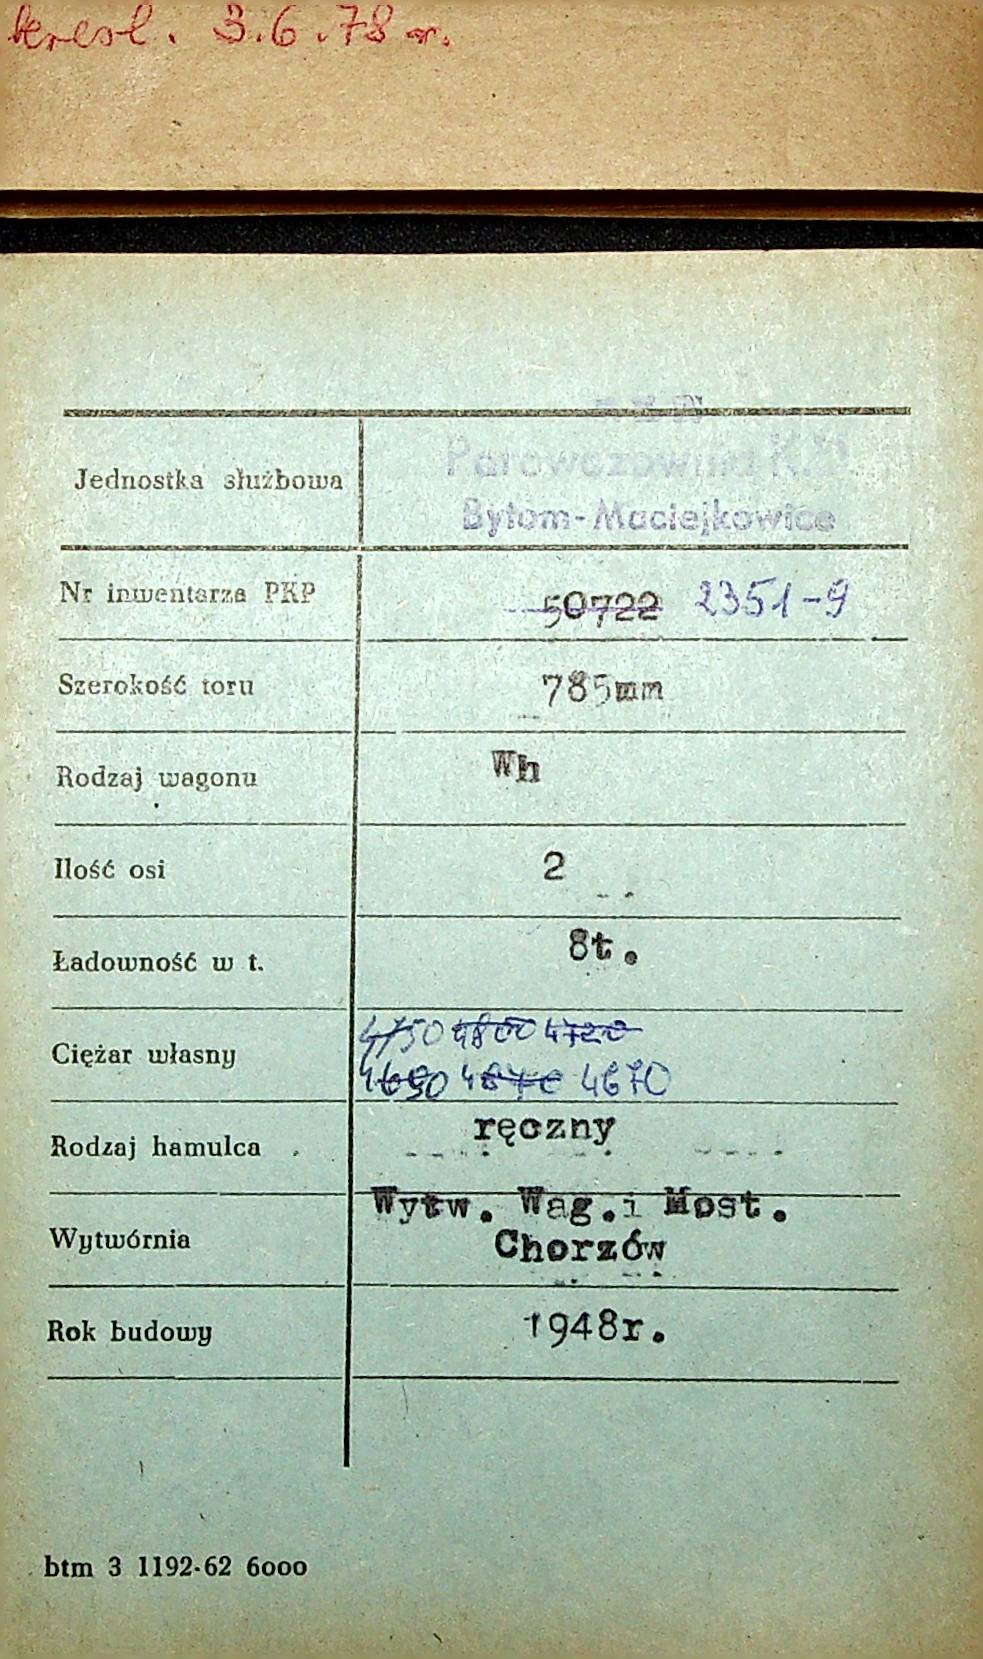 kresl. 3.6.78 r.
Jednostka służbowa
Parowozownia K.D.
Bytom-Maciejkowice
Nr inwentarza PKP 50722 2351-9
Szerokość toru 785mm
Rodzaj wagonu Wh
Ilość osi 2
Ładowność w t. 8t.
Ciężar własny 4750 4800 4720
4690 4670
Rodzaj hamulca ręczny
Wytwórnia Wytw. Wag.i Most.
Chorzów
Rok budowy 1948r.
btm 3 1192-62 6000